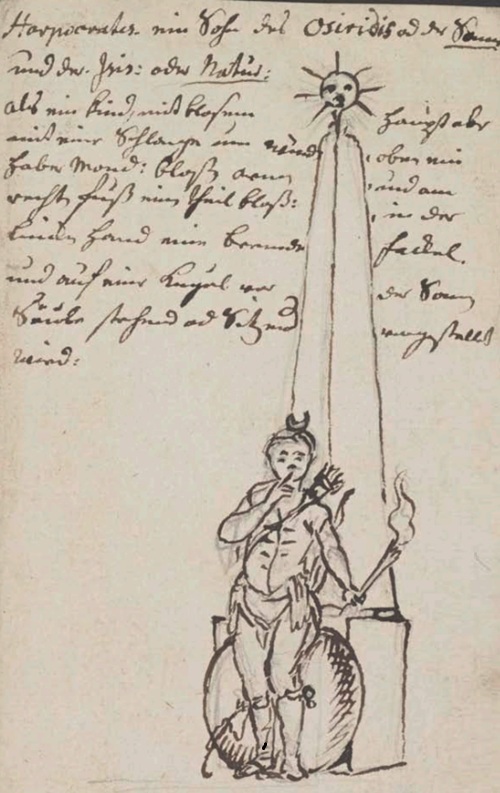 Harpocrates ein Sohn des Osiridis od der Sonn
und der Isis: oder Natur:
als ein kind, mit blosem haupt aber
mit eine Schlange um oben ein
halber Mond: blosz arm und am
recht fusz ein theil blosz: in der
linken hand eine brennde fackel.
und auf eine kugel vor der Sonn
Säule stehend od Sitzend vorgestellt
wird: